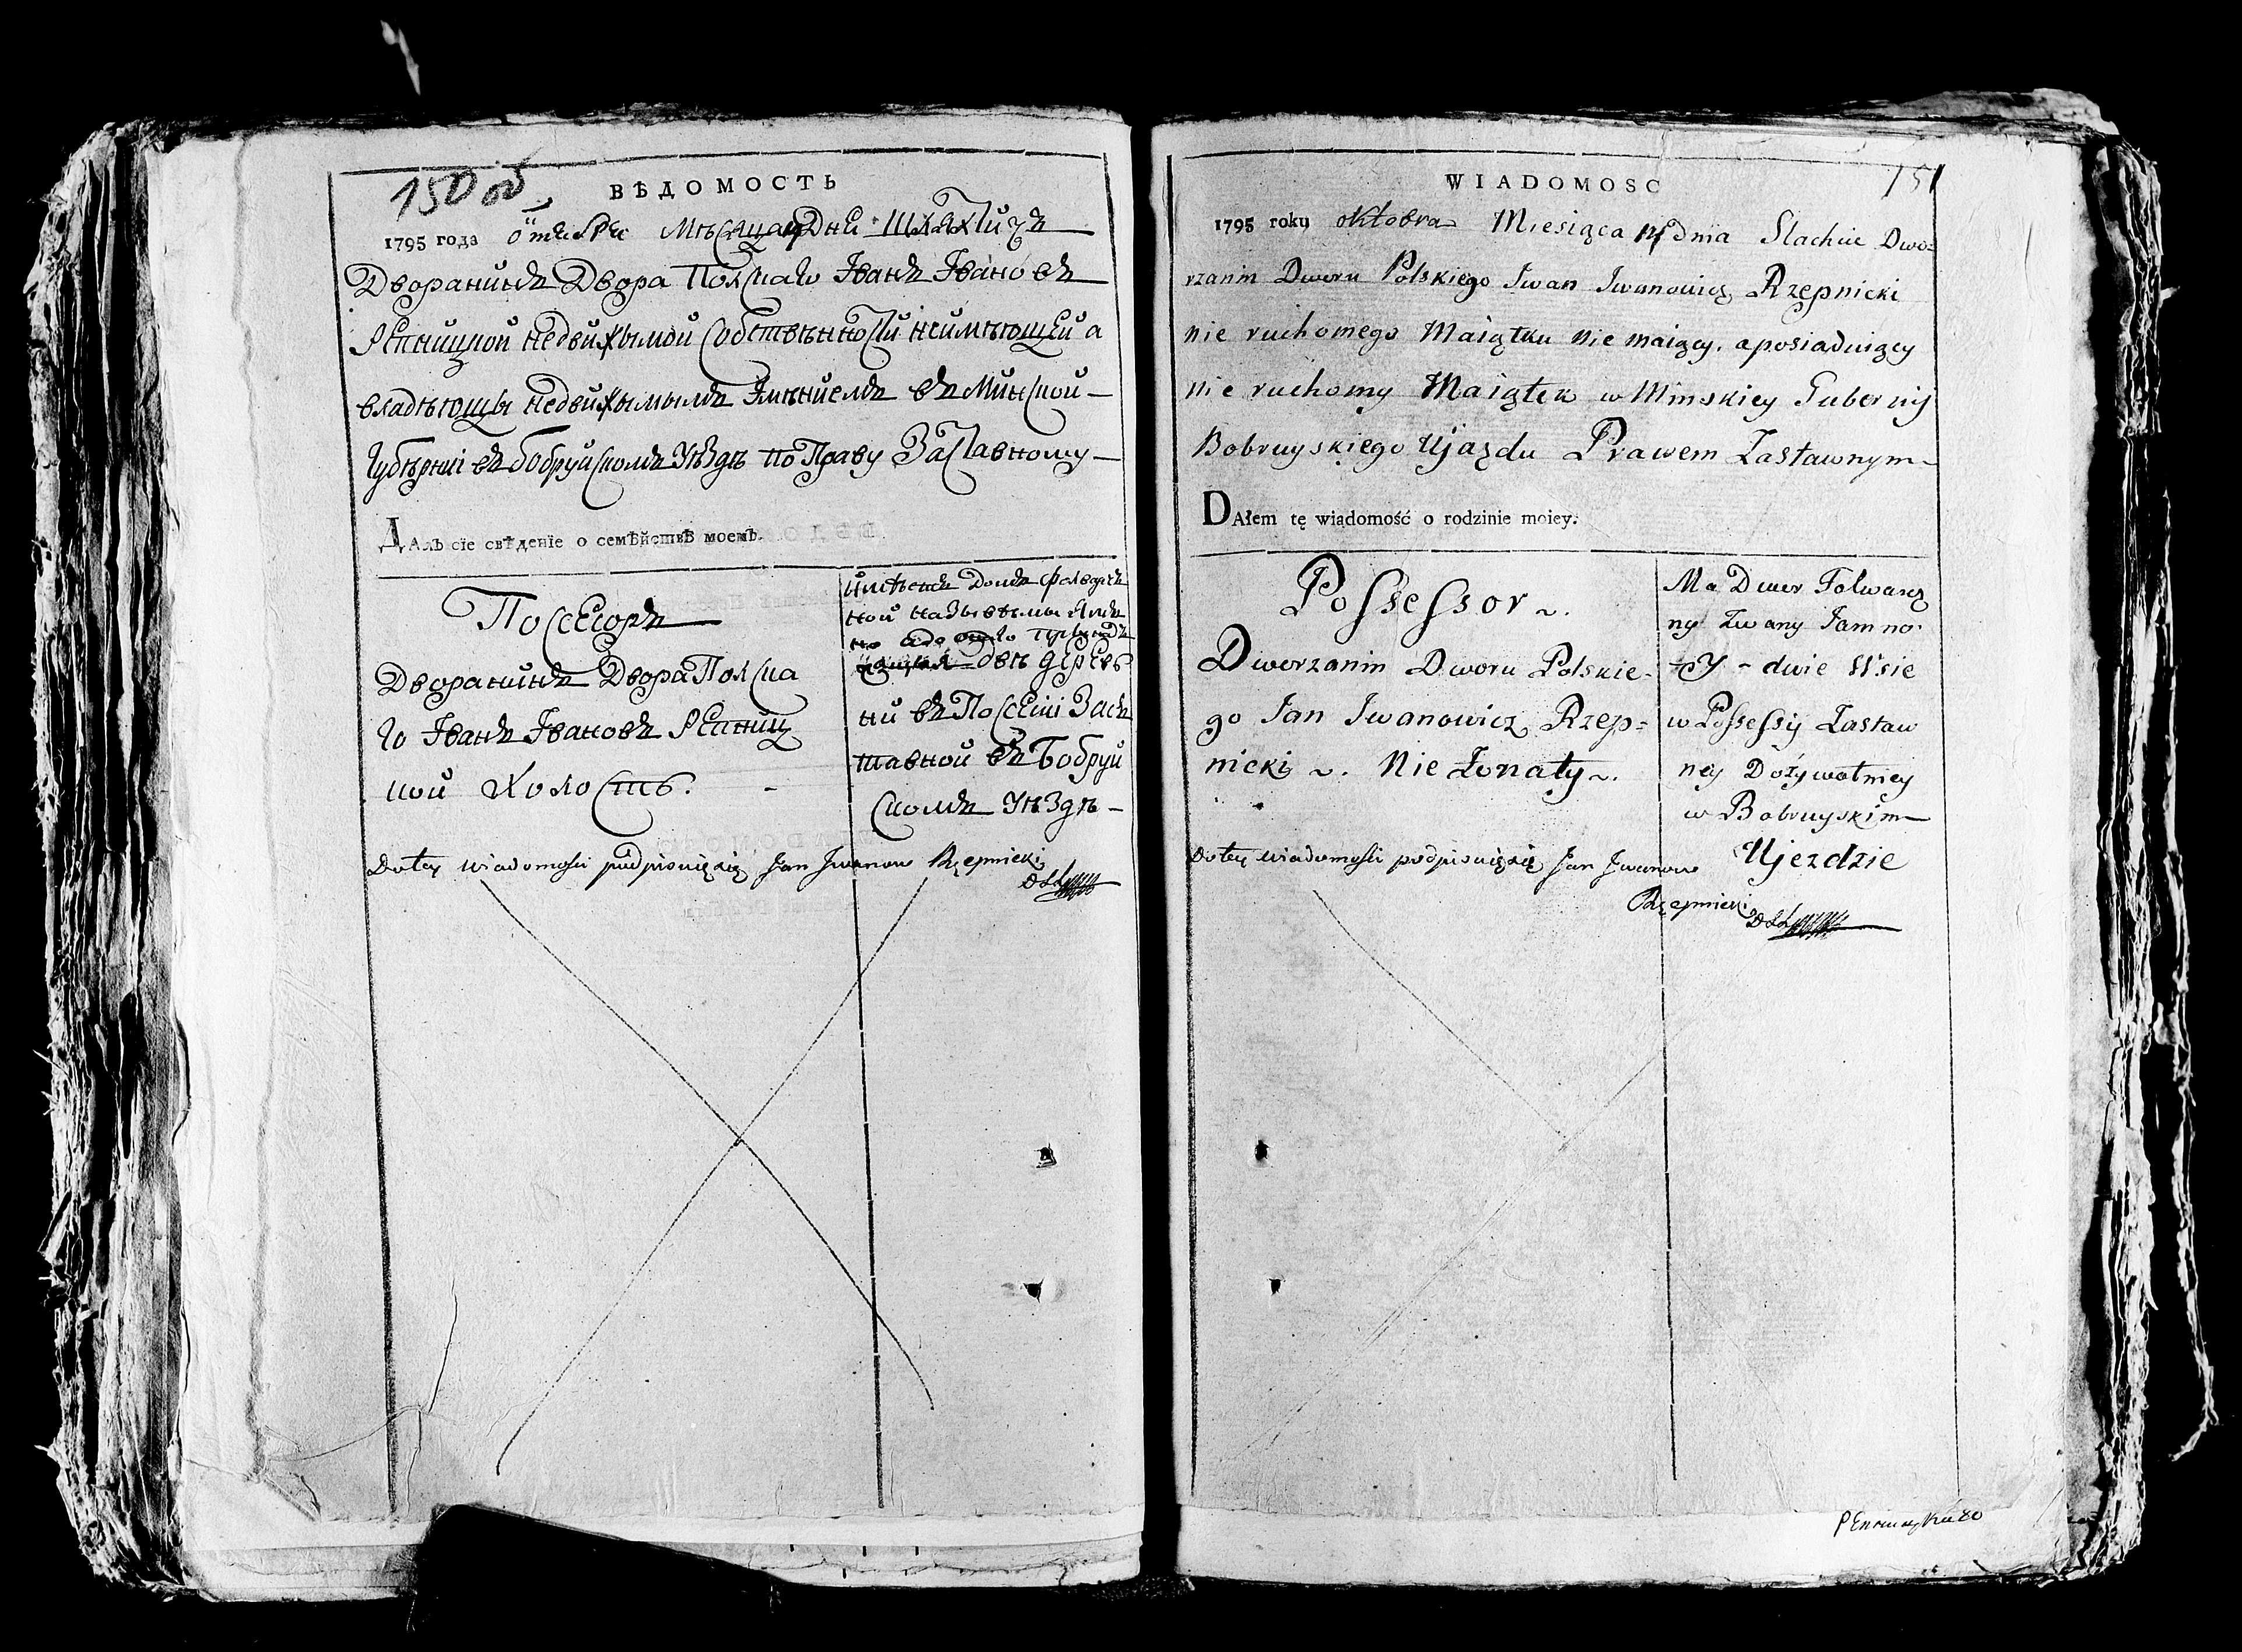 150 об
ВѢДОМОСТЬ
1795 года Октября Мѣсяца Дня Шляхтичъ
Дворанинъ Двора Полскаго Іванъ Івановъ
Репницкой недвижымой собственности неимѣющей а
владѣющы недвижымымъ Імѣниемъ въ Минской
Губѣрніі въ бобруйскомъ Уѣздѣ по Праву Заставному
ДАлъ сіе свѣденіе о семѣйствѣ моемъ.
Посесоръ
Дворанинъ Двора Полска
го Іванъ Івановъ Репниц
кой Холость.
имѣетъ Домъ фолварч
ной назывѣмы Ямъ
но
двѣ дерев
ни въ Посесіі Зас
тавной въ Бобруй
скомъ Уѣздѣ
Do tey wiadomosci podpisuię się Jan Iwanow Rzepnicki
151
WIADOMOSC
1795 roku oktobra Miesiąca 14 Dnia Slachcic Dwo=
rzanin Dworu Polskiego Iwan Iwanowicz Rzepnicki
nie ruchomego Maiątku nie maiący. a posiaduiący
nie ruchomy Maiątek w Minskiey Gubernij
Bobruyskiego Ujazdu Prawem Zastawnym
DAłem tę wiadomość o rodzinie moiey:
Possessor
Dworzanin Dworu Polskie=
go Jan Iwanowicz Rzep=
nicki Nie Żonaty
Ma Dwor Folwarcz
ny Zwany Jamno
y dwie Wsie
w Possessij Zastaw
ney Dożywotniey
w Bobruyskim
Ujezdzie
Do tey wiadomosci podpisuię się Jan Iwanow
Rzepnicki